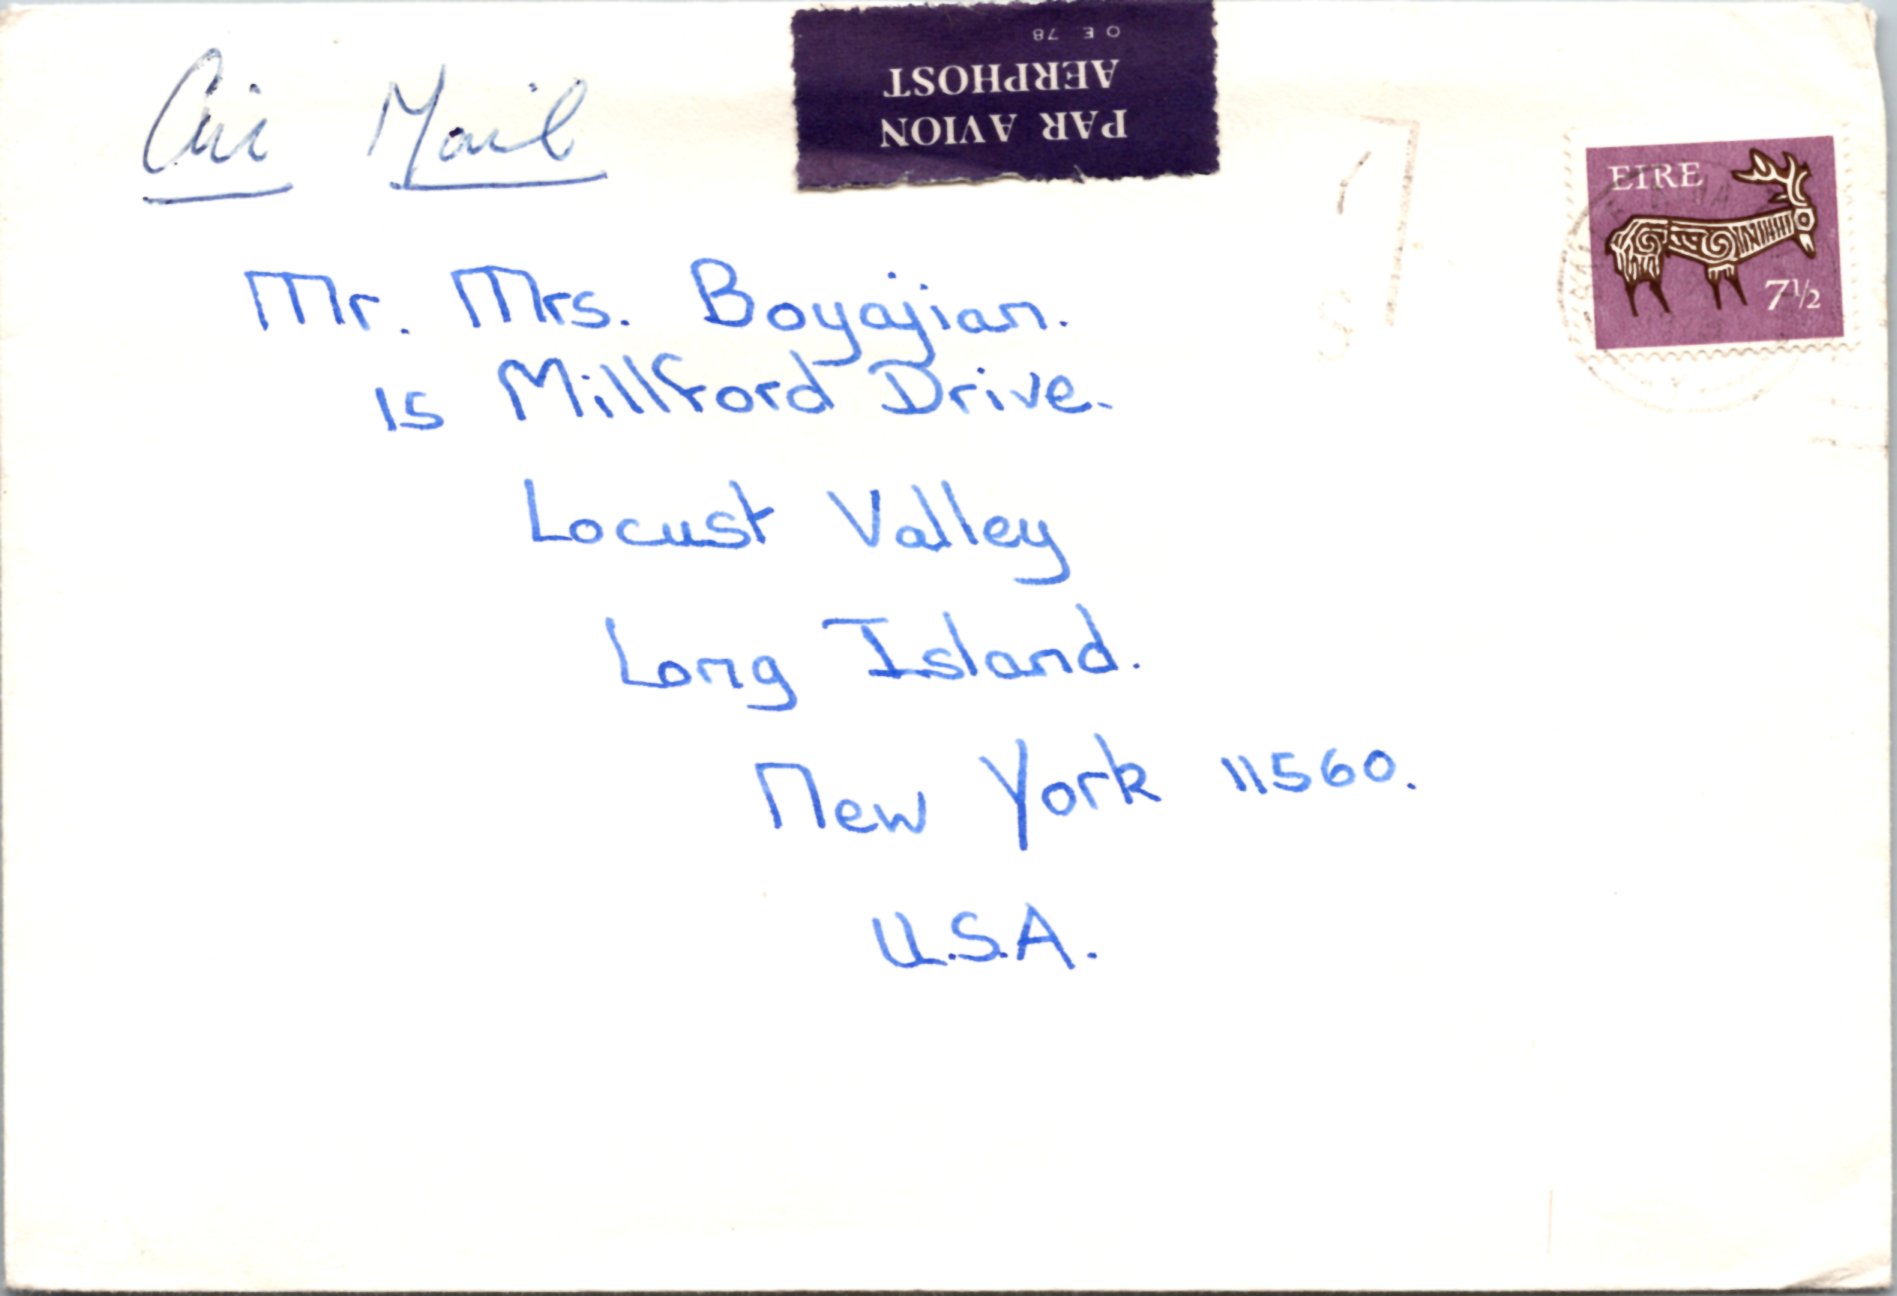 Air Mail
PAR AVION
AERPHOST
OE 78
EIRE
7½
Mr. Mrs. Boyajian.
15 Millford Drive.
Locust Valley
Long Island.
New York 11560.
U.S.A.